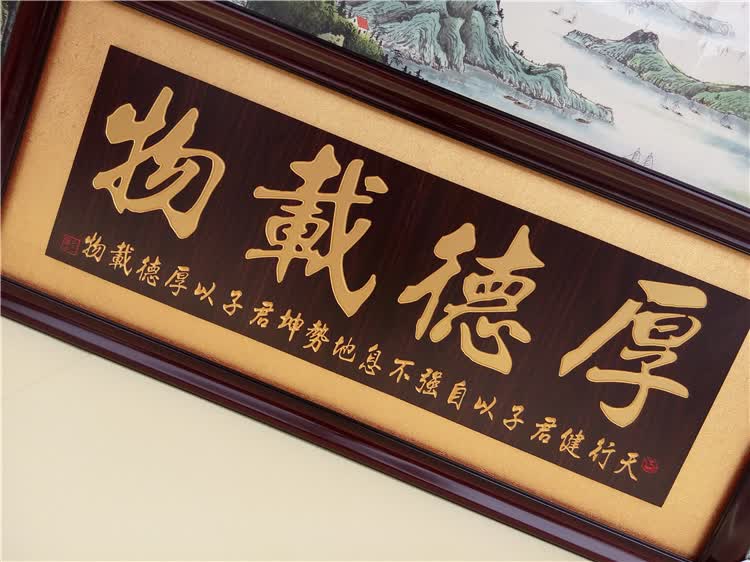 厚德載物
天行健君子以自强不息地勢坤君子以厚德載物